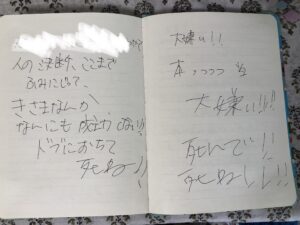 人の決断、ここまで
ふみにじって、
きさまなんか、
なんにも成功しない!!
ドブにおちて
死ね!!
大嫌い!!
本っっっ当
大嫌い!!!
死んで!!
死ね!!!